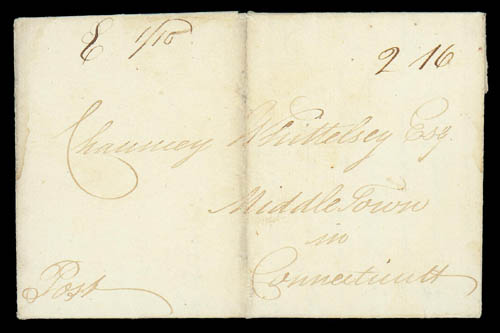 E 1/10 2 16
Chauncey Whittelsey Esq.
Middle Town
in
Connecticutt
Post